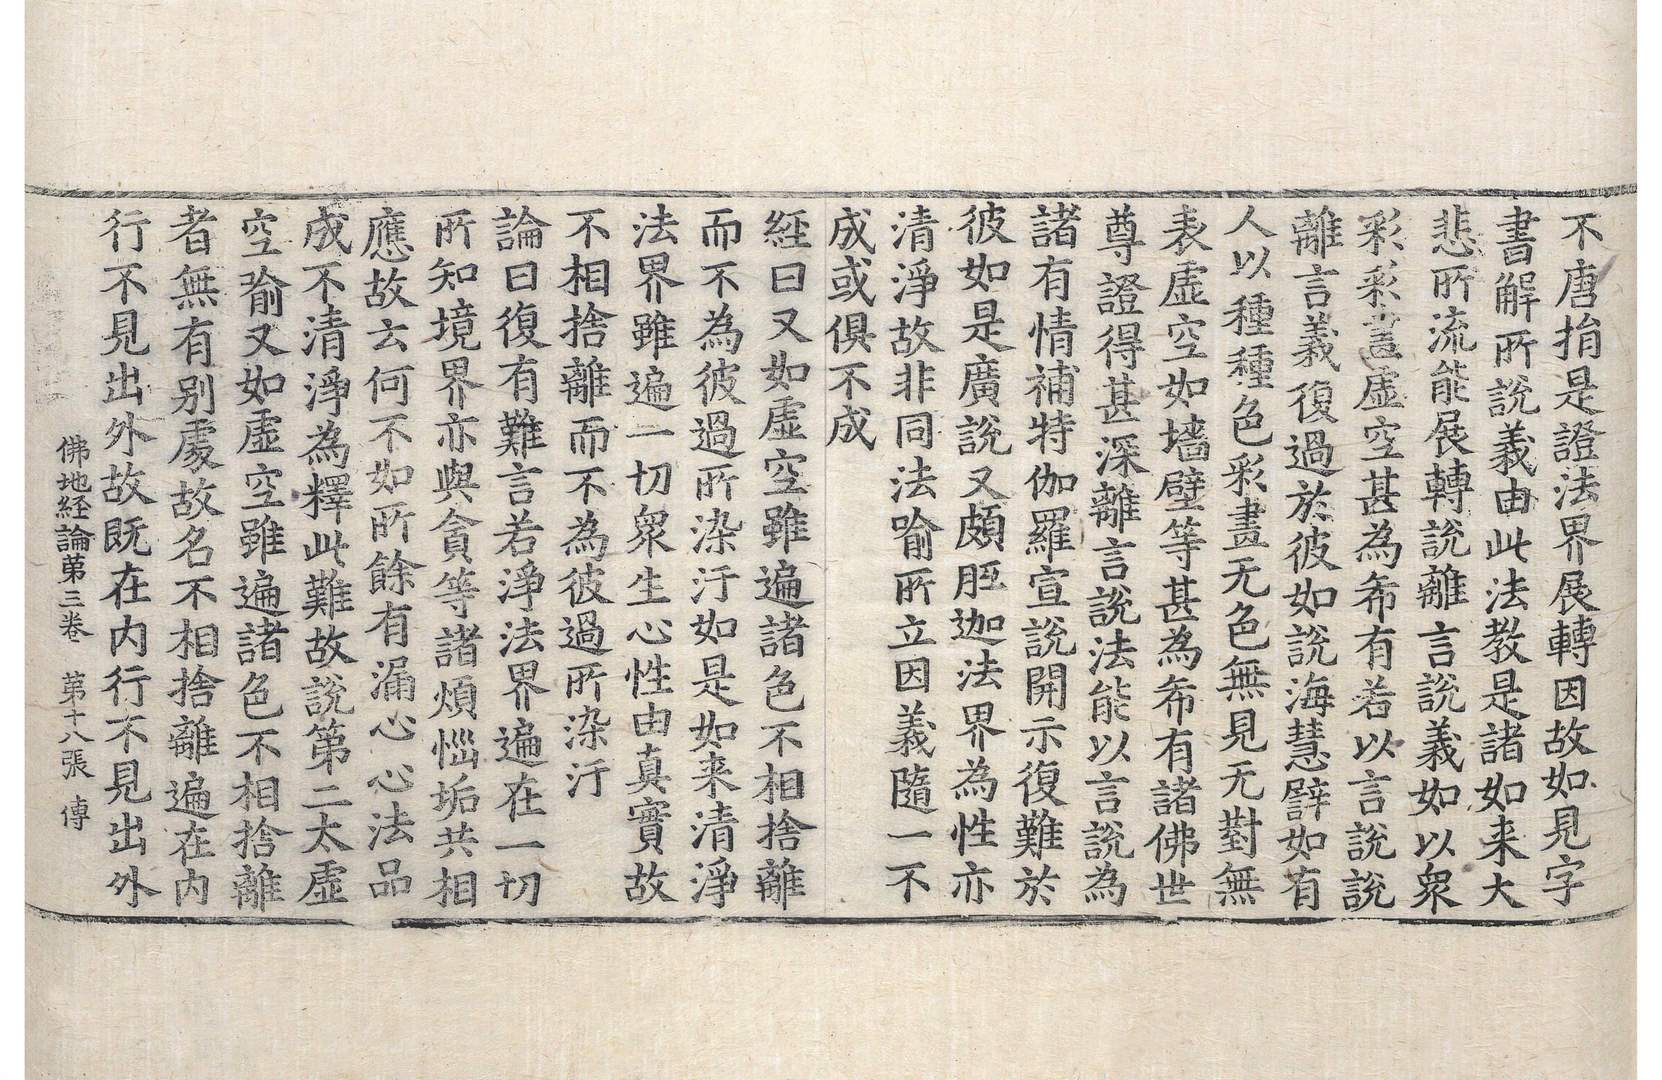 不唐捐是證法界展轉因故如見字
書解所說義由此法教是諸如来大
悲所流能展轉說離言說義如以衆
彩彩畫虛空甚為希有若以言說說
離言義復過於彼如說海慧譬如有
人以種種色彩畫无色無見无對無
表虛空如墻壁等甚為希有諸佛世
尊證得甚深離言說法能以言說為
諸有情補特伽羅宣說開示復難於
彼如是廣說又頗胝迦法界為性亦
清淨故非同法喻所立因義隨一不
成或俱不成
經曰又如虛空雖遍諸色不相捨離
而不為彼過所染汙如是如来清淨
法界雖遍一切衆生心性由真實故
不相捨離而不為彼過所染汙
論曰復有難言若淨法界遍在一切
所知境界亦與貪等諸煩惱垢共相
應故云何不如所餘有漏心心法品
成不清淨為釋此難故說第二太虛
空喻又如虛空雖遍諸色不相捨離
者無有別處故名不相捨離遍在內
行不見出外故既在內行不見出外
佛地経論第三卷 第十八張 傳